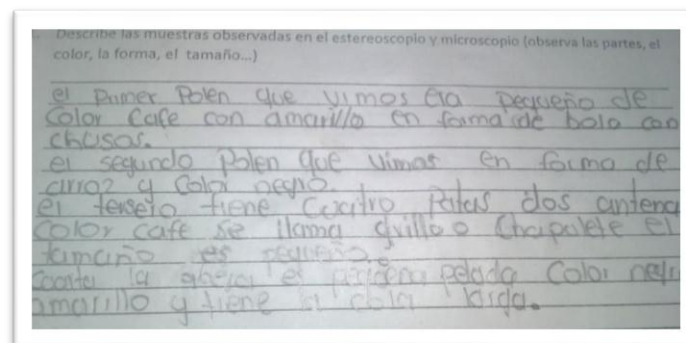 Describe las muestras observadas en el estereoscopio y microscopio (observa las partes, el
color, la forma, el tamaño...)
el primer Polen que vimos era pequeño de
Color Cafe con amarillo en forma de bola con
chusos.
el segundo Polen que vimos en forma de
arroz y Color negro.
el tersero tiene Cuatro Patas dos antena
Color cafe se llama grillo o Chapulete el
tamaño es pequeño.
la es pelada Color
amarillo y tiene la cola